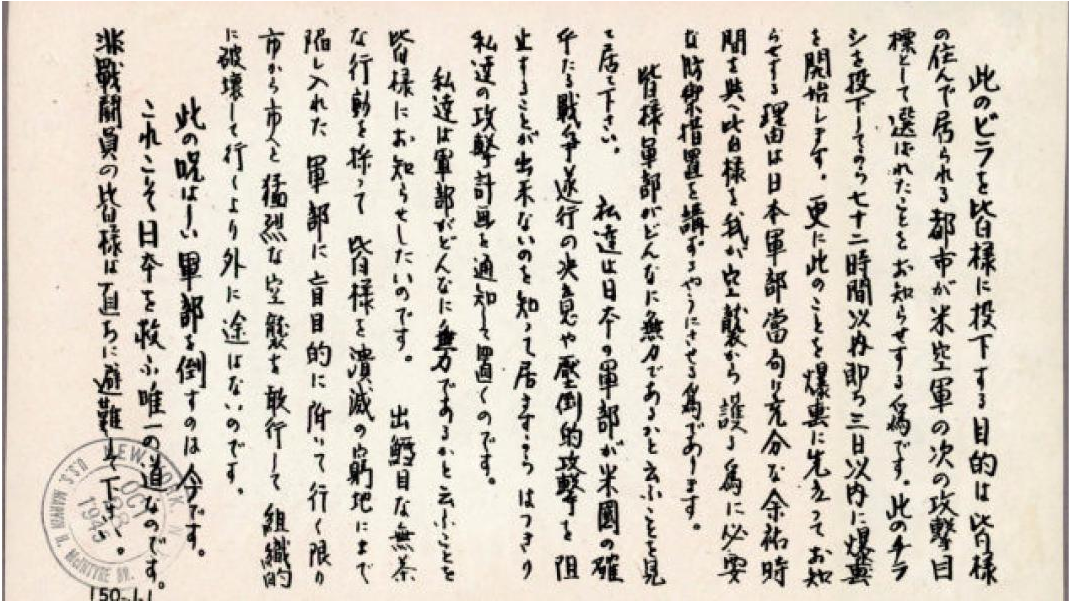 此のビラを皆様に投下する目的は皆様
の住んで居られる都市が米空軍の次の攻撃目
標として選ばれたことをお知らせする為です。此のチラ
シを投下してから七十二時間以内即ち三日以内に爆撃
を開始します。更に此のことを爆撃に先立つてお知
らせする理由は日本軍部當局に充分な余祐時
間を與へ皆様を我が空襲から護る為に必要
な防禦措置を講ずるやうにさせる為であります。
皆様軍部がどんなに無力であるかと云ふことを見
て居て下さい。私達は日本の軍部が米國の確
乎たる戦争遂行の决意や壓倒的攻撃を阻
止することが出来ないのを知つて居ますからはつきり
私達の攻撃計画を通知して置くのです。
私達は軍部がどんなに無力であるかと云ふことを
皆様にお知らせしたいのです。出鱈目な無茶
な行動を採つて皆様を潰滅の窮地にまで
陥し入れた軍部に盲目的に附いて行く限り
市から市へと猛烈な空襲を敢行して組織的
に破壊して行くより外に途はないのです。
此の呪はしい軍部を倒すのは今です。
これこそ日本を救ふ唯一の道なのです。
非戰闘員の皆様は直ちに避難して下さい。
NEW YORK, N.
OCT
28
1945
U.S.S. MARVIN H. McINTYRE BR.
150-J-1